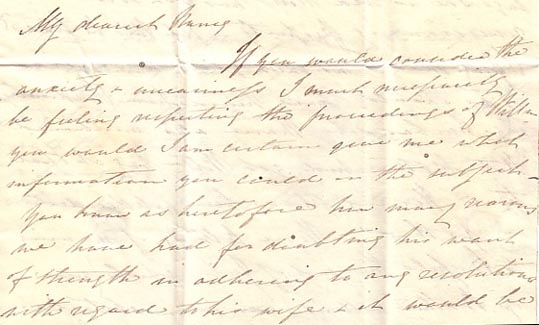 My dearest Nancy
If you would consider the
anxiety & uneasiness I must necessarily
be feeling respecting the proceedings of William
you would I am certain give me what
information you could on the subject -
You know as heretofore how many reasons
we have had for doubting his want
of strength in adhering to any resolutions
with regard to his wife & it would be